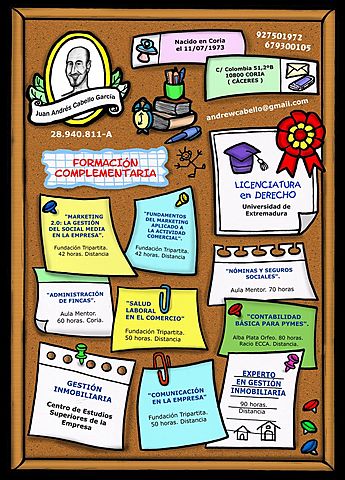 Nacido en Coria
el 11/07/1973
927501972
679300105
C/ Colombia 51,2ºB
10800 CORIA
( CÁCERES )
Juan Andrés Cabello García
andrewcabello@gmail.com
28.940.811-A
FORMACIÓN
COMPLEMENTARIA
LICENCIATURA
en DERECHO
Universidad de
Extremadura
"MARKETING
2.0: LA GESTIÓN
DEL SOCIAL MEDIA
EN LA EMPRESA".
Fundación Tripartita.
42 horas. Distancia
"FUNDAMENTOS
DEL MARKETING
APLICADO A
LA ACTIVIDAD
COMERCIAL".
Fundación Tripartita.
42 horas. Distancia
"NÓMINAS Y SEGUROS
SOCIALES".
Aula Mentor. 70 horas
"ADMINISTRACIÓN
DE FINCAS".
Aula Mentor.
60 horas. Coria.
"SALUD
LABORAL
EN EL COMERCIO"
Fundación Tripartita.
50 horas. Distancia
"CONTABILIDAD
BÁSICA PARA PYMES".
Alba Plata Orfeo. 80 horas.
Racio ECCA. Distancia.
GESTIÓN
INMOBILIARIA
Centro de Estudios
Superiores de la
Empresa
"COMUNICACIÓN
EN LA EMPRESA"
Fundación Tripartita.
50 horas. Distancia
EXPERTO
EN GESTIÓN
INMOBILIARIA
90 horas.
Distancia